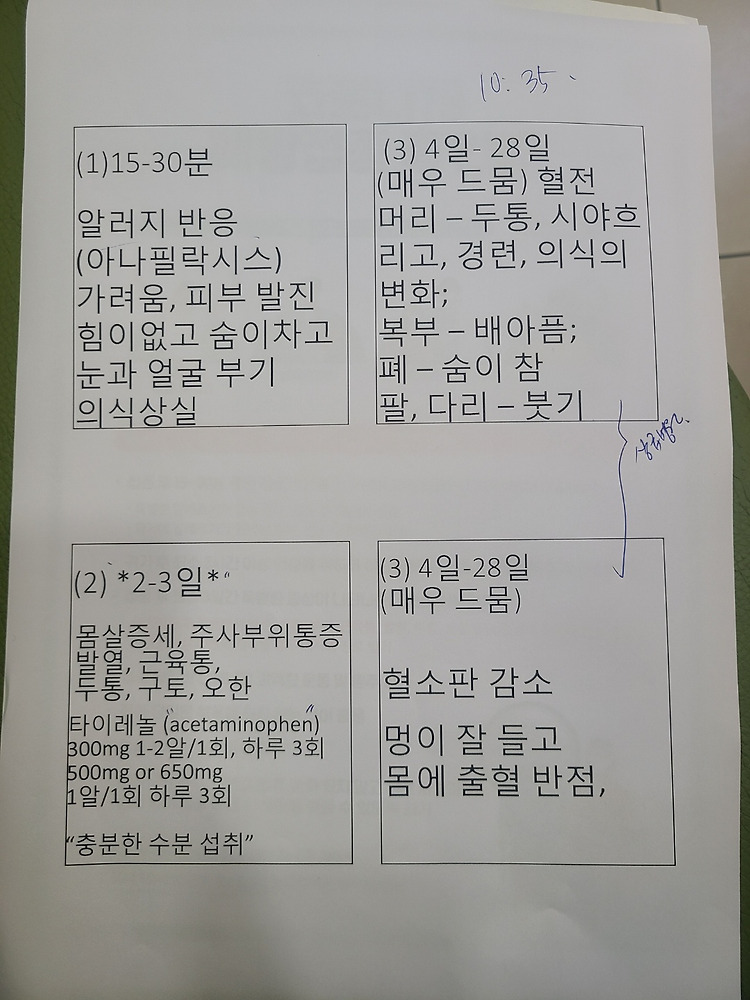 10:35
(1)15-30분
알러지 반응
(아나필락시스)
가려움, 피부 발진
힘이없고 숨이차고
눈과 얼굴 부기
의식상실
(3) 4일- 28일
(매우 드뭄) 혈전
머리 – 두통, 시야흐
리고, 경련, 의식의
변화;
복부 – 배아픔;
폐 – 숨이 참
팔, 다리 – 붓기
(2) *2-3일*
몸살증세, 주사부위통증
발열, 근육통,
두통, 구토, 오한
타이레놀 (acetaminophen)
300mg 1-2알/1회, 하루 3회
500mg or 650mg
1알/1회 하루 3회
“충분한 수분 섭취”
(3) 4일-28일
(매우 드뭄)
혈소판 감소
멍이 잘 들고
몸에 출혈 반점,